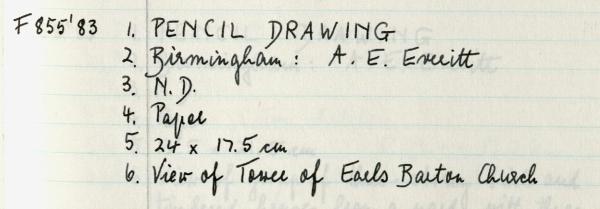 F 855'83 1. PENCIL DRAWING
2. Birmingham: A. E. Everitt
3. N.D.
4. Paper
5. 24 x 17.5 cm
6. View of Tower of Earls Barton Church